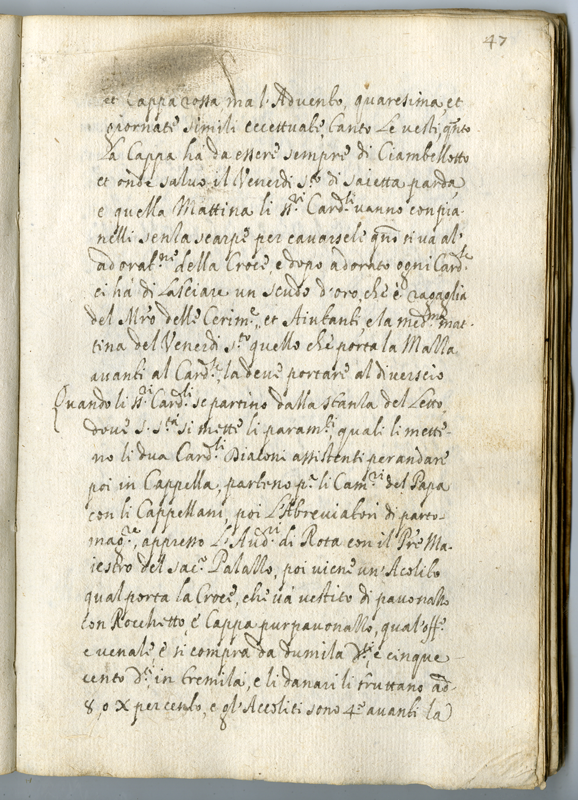 47
et Cappa rossa ma l'Advento, quaresima, et
giornate simili eccettuate tanto le vesti qnto
La Cappa ha da essere sempre di Ciambellotto
et onde salvo il Venerdi sto di saietta parda
e quella Mattina li SSri Cardli vanno con pia-
nelli senza scarpe per cavarsele qño si va al'
adoratne della Croce e dopo adorato ogni Cardle
ci há di Lasciare un scudo d'oro, che è ragaglia
del Mro delle Cerime, et Aiutanti e la medma mat-
tina del Venerdi sto quello che porta la Mazza
avanti al Cardle, la deve portare al diverscio
Quando li SSri Cardli se partino dalla stanza del Letto
dove S. Sta si mette li paramti quali li mette-
no li dua Cardli Diaconi assistenti per andare
poi in Cappella, parteno pa li Camri del Papa
con li Cappellani, poi L'Abreviatori di parco
magre, appresso L'Audri di Rota con il Pre Ma-
iestro del sacro Palazzo, poi viene un' Acolito
qual porta la Croce, che va vestito di pavonazzo
con Rocchetto e Cappa pur pavonazzo, qual' offo
e venale è si compra da dumila dti e cinque-
cento dti in tremila, e li danari li fruttano ad
8, o X per cento, e gl' Accoliti sono 4o avanti la